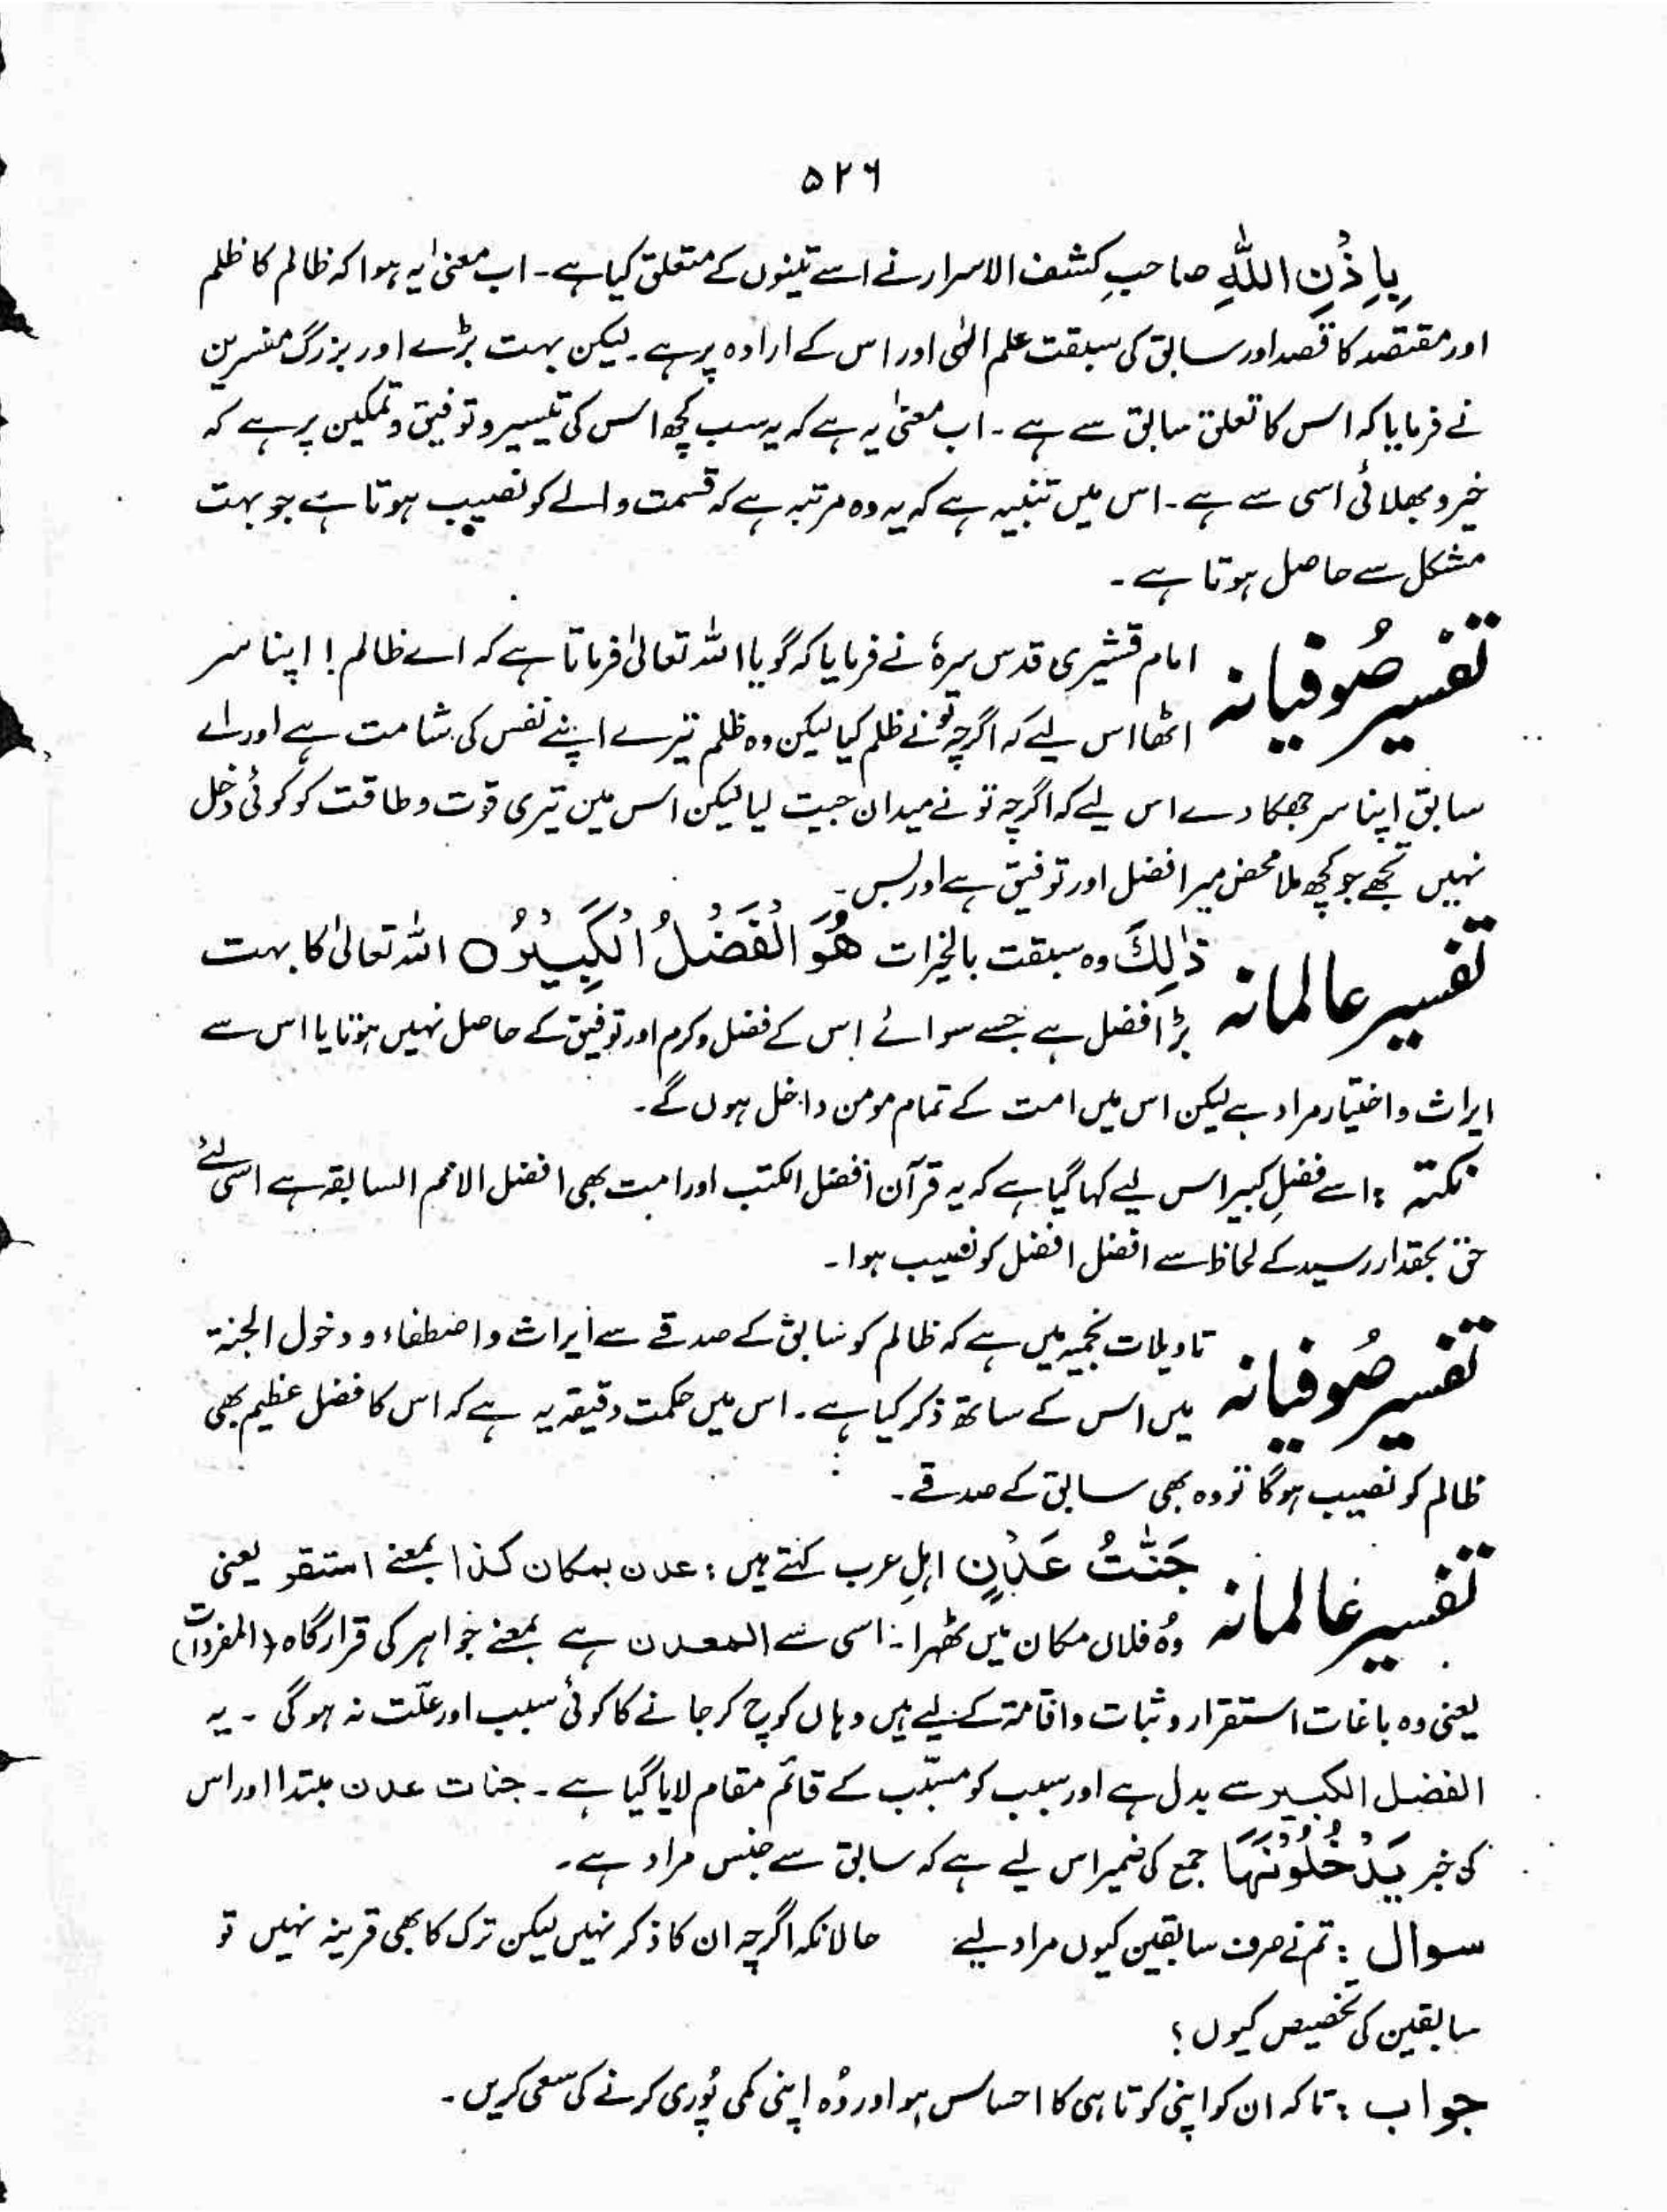 ۵۲۶
بِاِذْنِ اللّٰهِ صاحبِ کشف الاسرار نے اسے تینوں کے متعلق کیا ہے۔ اب معنیٰ یہ ہوا کہ ظالم کا ظلم
اور مقتصد کا قصد اور سابق کی سبقت علم الٰہی اور اس کے ارادہ پر ہے۔ لیکن بہت بڑے اور بزرگ مفسرین
نے فرمایا کہ اس کا تعلق سابق سے ہے۔ اب معنیٰ یہ ہے کہ یہ سب کچھ اس کی تیسیر و توفیق و تمکین پر ہے کہ
خیر و بھلائی اسی سے ہے۔ اس میں تنبیہ ہے کہ یہ وہ مرتبہ ہے کہ قسمت والے کو نصیب ہوتا ہے جو بہت
مشکل سے حاصل ہوتا ہے۔
تفسیر صُوفیانہ امام قشیری قدس سرہٗ نے فرمایا کہ گویا اللہ تعالیٰ فرماتا ہے کہ اے ظالم! اپنا سر
اٹھا اس لیے کہ اگرچہ تُو نے ظلم کیا لیکن وہ ظلم تیرے اپنے نفس کی شامت ہے اور اے
سابق اپنا سر جھکا دے اس لیے کہ اگرچہ تو نے میدان جیت لیا لیکن اس میں تیری قوت و طاقت کو کوئی دخل
نہیں تجھے جو کچھ ملا محض میرا فضل اور توفیق ہے اور بس۔
تفسیر عالمانہ ذٰلِكَ وہ سبقت بالخیرات هُوَ الْفَضْلُ الْكَبِيْرُ ○ اللہ تعالیٰ کا بہت
بڑا فضل ہے جسے سوائے اس کے فضل و کرم اور توفیق کے حاصل نہیں ہوتا یا اس سے
ایراث و اختیار مراد ہے لیکن اس میں امت کے تمام مومن داخل ہوں گے۔
نکتہ : اسے فضلِ کبیر اس لیے کہا گیا ہے کہ یہ قرآن افضل الکتب اور امت بھی افضل الامم السابقہ ہے اسی لئے
حق بحقدار رسید کے لحاظ سے افضل افضل کو نصیب ہوا۔
تفسیر صُوفیانہ تاویلات نجمیہ میں ہے کہ ظالم کو سابق کے صدقے سے ایراث و اصطفاء و دخول الجنۃ
میں اس کے ساتھ ذکر کیا ہے۔ اس میں حکمت دقیقہ یہ ہے کہ اس کا فضل عظیم بھی
ظالم کو نصیب ہوگا تو وہ بھی سابق کے صدقے۔
تفسیر عالمانہ جَنّٰتُ عَدْنٍ اہلِ عرب کہتے ہیں : عدن بمکان کذا بمعنے استقر یعنی
وہ فلاں مکان میں ٹھہرا۔ اسی سے المعدن ہے بمعنے جواہر کی قرارگاہ (المفردات)
یعنی وہ باغات استقرار و ثبات و اقامۃ کے لیے ہیں وہاں کوچ کر جانے کا کوئی سبب اور علّت نہ ہوگی ۔ یہ
الفضل الکبیر سے بدل ہے اور سبب کو مسبّب کے قائم مقام لایا گیا ہے۔ جنات عدن مبتدا اور اس
کی خبر يَدْخُلُوْنَهَا جمع کی ضمیر اس لیے ہے کہ سابق سے جنس مراد ہے۔
سوال : تم نے صرف سابقین کیوں مراد لیے حالانکہ اگرچہ ان کا ذکر نہیں لیکن ترک کا بھی قرینہ نہیں تو
سابقین کی تخصیص کیوں ؟
جواب : تاکہ ان کو اپنی کوتاہی کا احساس ہو اور وُہ اپنی کمی پُوری کرنے کی سعی کریں۔